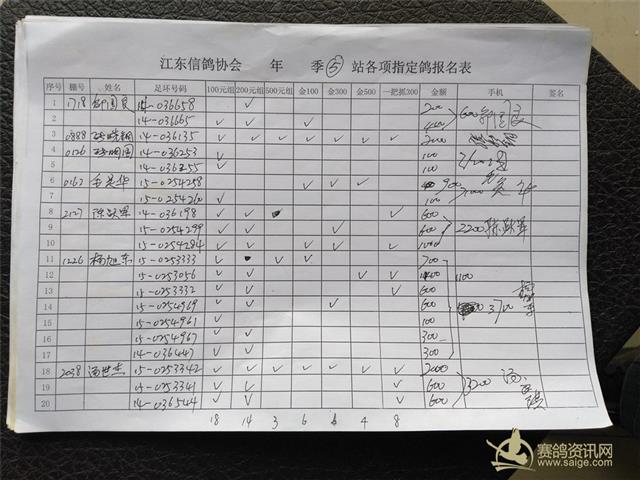 江东信鸽协会 年 季⑤ 站各项指定鸽报名表
序号 棚号 姓名 足环号码 100元组 200元组 500元组 金100 金300 金500 一把抓300 金额 手机 签名
1 1718 14-036658 ✓ 200
2 14-036665 ✓ ✓ ✓ 400
3 0888 14-036135 ✓ ✓ ✓ ✓ ✓ ✓ ✓ 2000
4 0126 14-036253 ✓ 100
5 14-036255 ✓ 100
6 0162 15-0254258 ✓ ✓ ✓ 900
7 15-0254210 ✓ 100
8 2127 陈跃军 14-036198 ✓ ✓ ✓ 600
9 15-0254299 ✓ ✓ ✓ 600 2200 陈跃军
10 15-0254284 ✓ ✓ ✓ ✓ ✓ 1000
11 1226 杨旭东 15-0253333 ✓ ✓ ✓ 700
12 15-0253056 ✓ ✓ ✓ ✓ 1100
13 15-0253332 ✓ ✓ ✓ 600
14 15-0254969 ✓ ✓ ✓ 600 3700
15 15-0254961 ✓ 100
16 15-0254967 ✓ ✓ 300
17 14-036447 ✓ ✓ 300
18 2038 汤世杰 15-0253342 ✓ ✓ ✓ ✓ ✓ ✓ ✓ 2000
19 15-0253341 ✓ ✓ ✓ 600 3200
20 14-036544 ✓ ✓ ✓ 600
18 14 3 6 6 4 8
赛鸽资讯网
www.saige.com